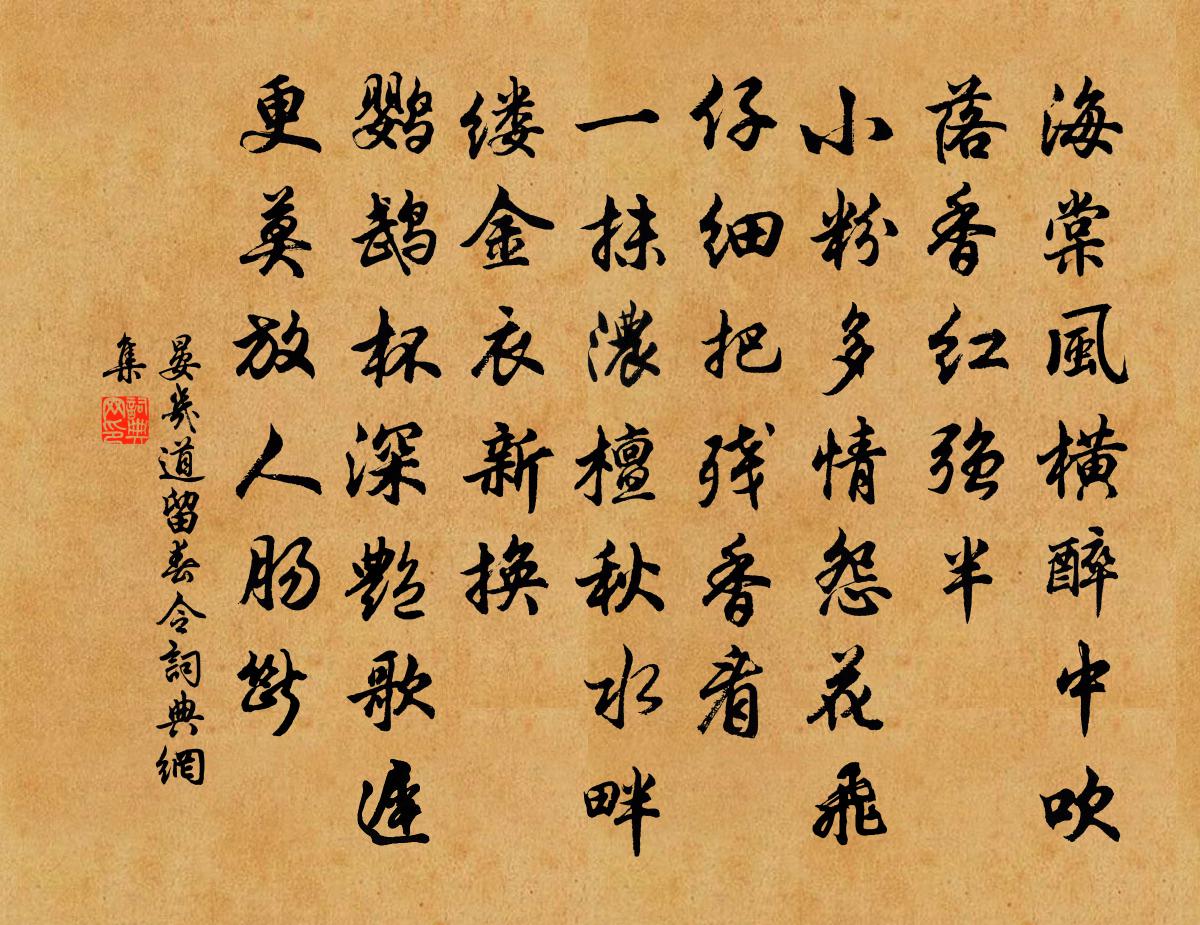 海棠風横醉中吹
落香红强半
小粉多情怨花飛
仔细把残香看
一抹濃檀秋水畔
缕金衣新换
鹦鹉杯深艷歌遲
更莫放人肠斷
晏幾道留春令詞典網
集
詞典
网印